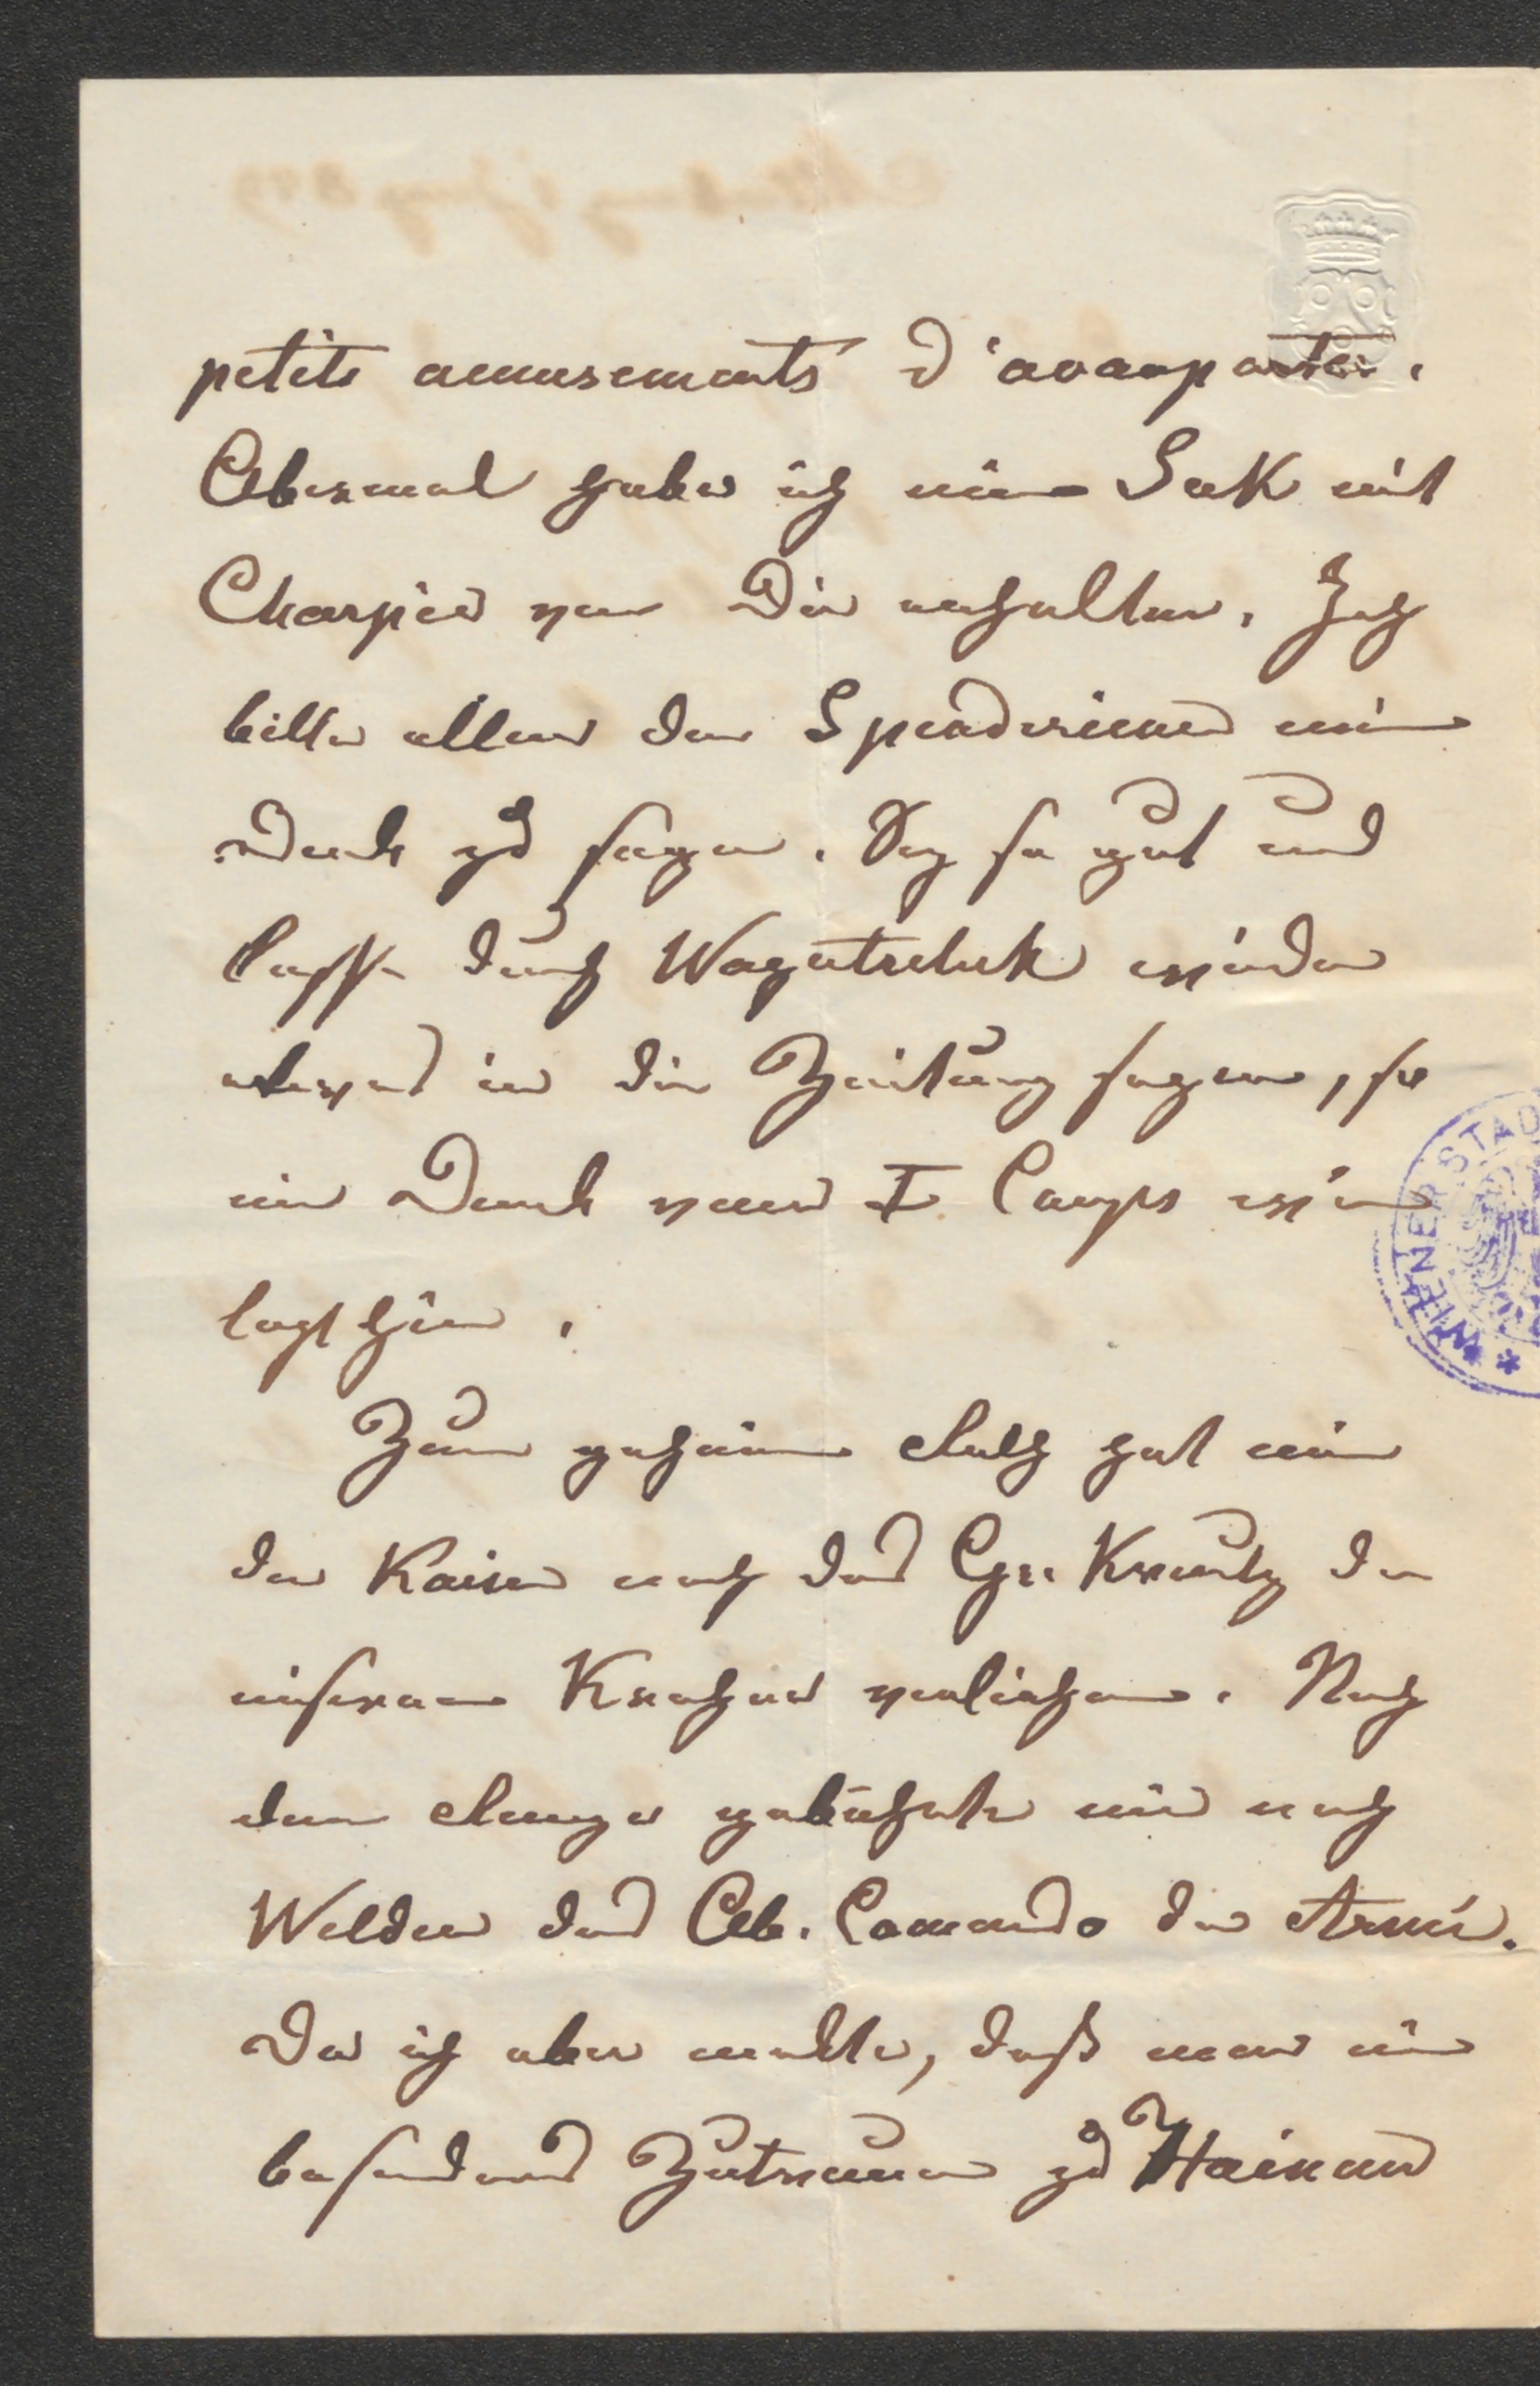 petits amusements d'avanposter.
Abermal habe ich ein Sak mit
Charpie von Dir erhalten. Ich
bitte allen den Spenderinen mein
Dank zu sagen. Sey so gut und
lasse durch Wogatschek wieder
etwas in die Zeitung sagen, so
ein Dank vom I. Corps wie
lezthin.
Zum geheimen Rath hat mir
der Kaiser auch das Gr: Kreutz der
eisernen Krohne verliehen. Nach
dem Range gebührte mir nach
Welden das Ob. Comando der Armée.
Da ich aber merkte, daß man ein
besonderes Zutrauen zu Hainau
WIENER STAD